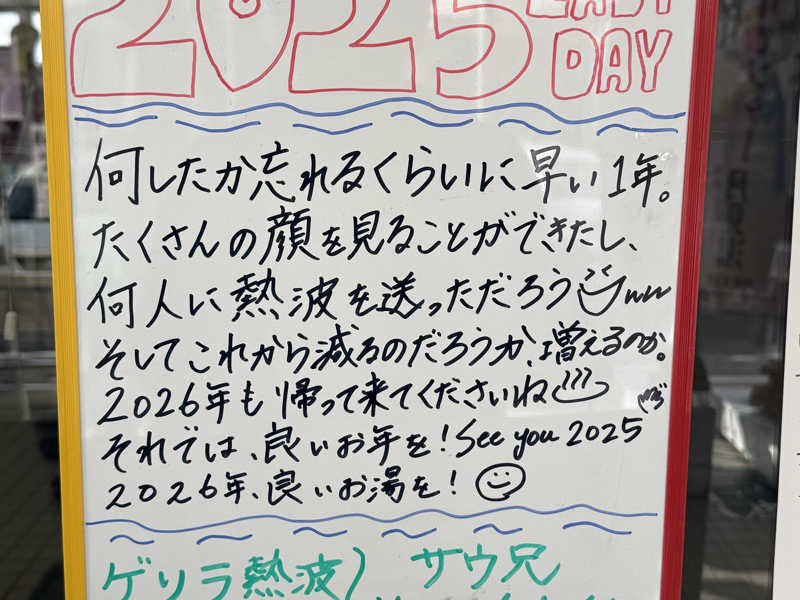 2025 LAST DAY
何したか忘れるくらいに早い1年。
たくさんの顔を見ることができたし、
何人に熱波を送っただろうww
そしてこれから減るのだろうか、増えるのか。
2026年も帰って来てくださいね
それでは、良いお年を!See you 2025
2026年、良いお湯を!
ゲリラ熱波) サウ兄